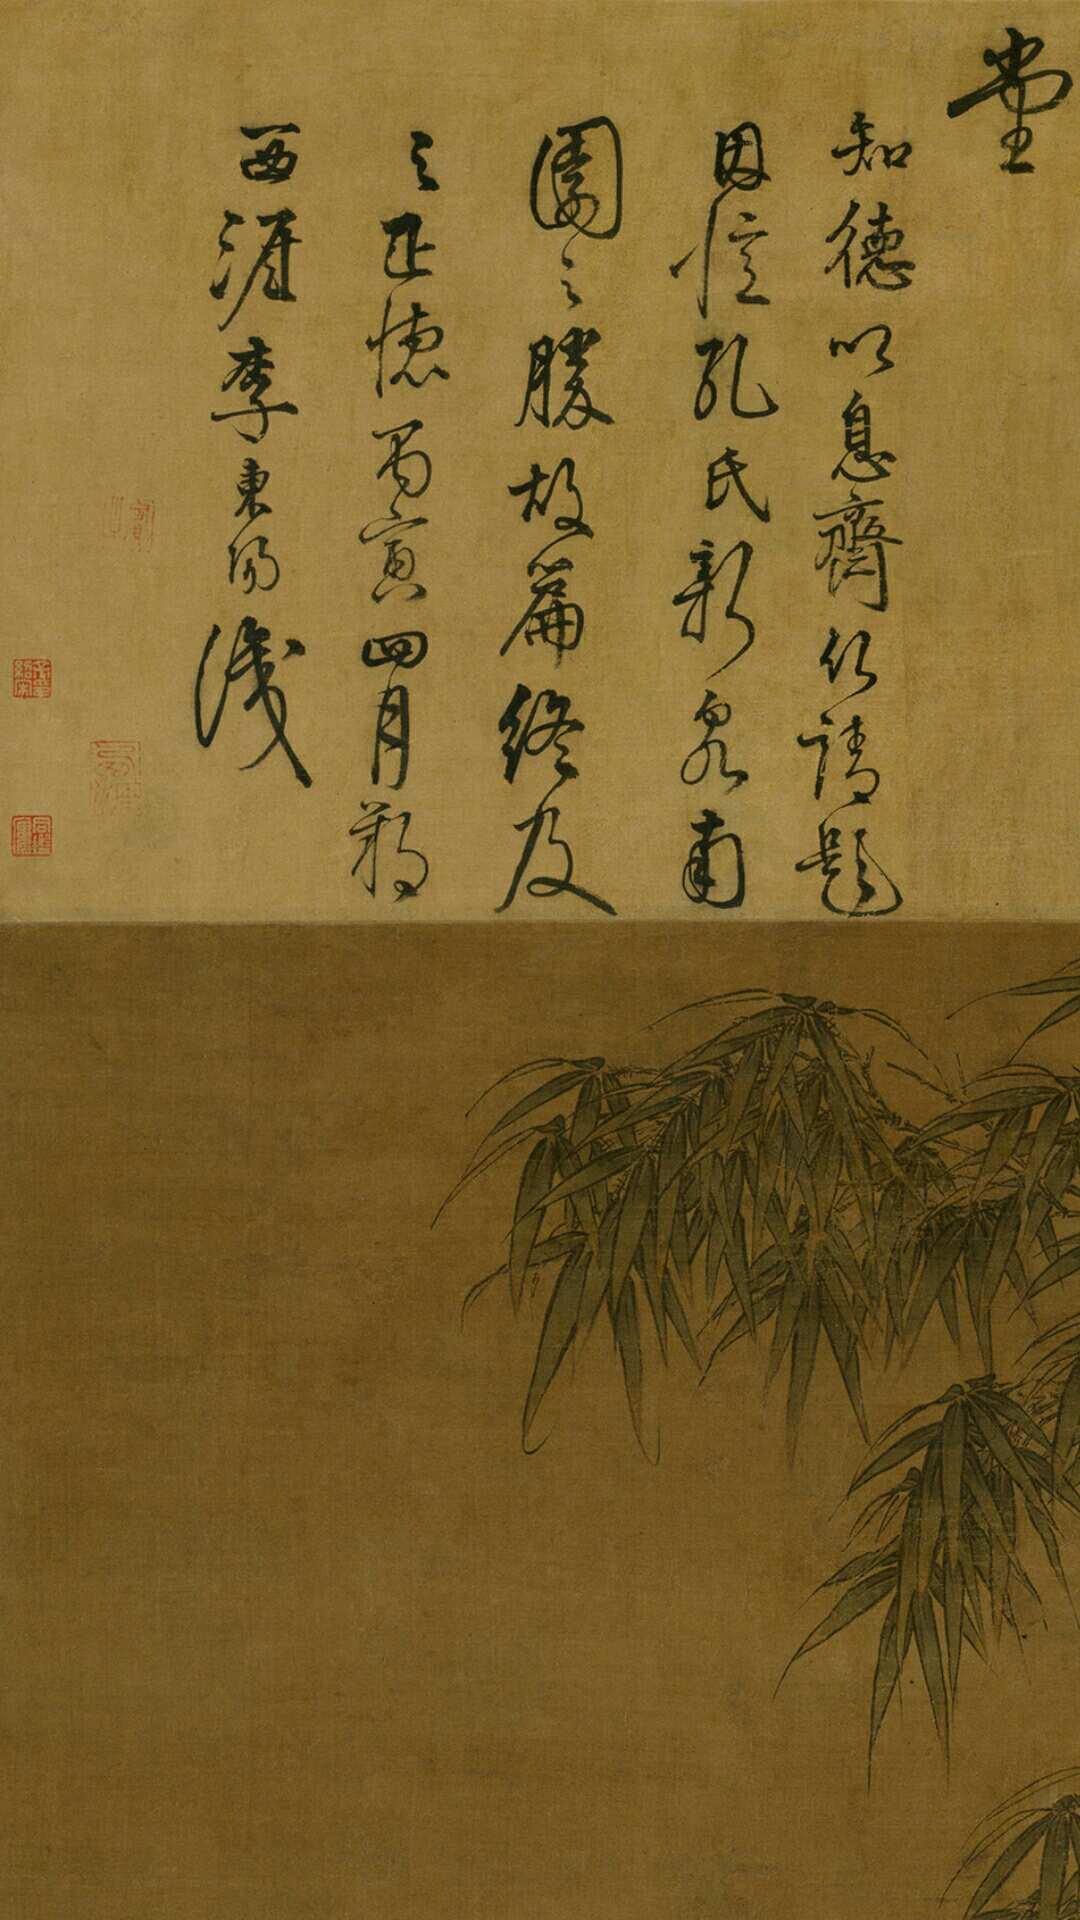 堂
知德以息齋竹請題
因憶孔氏新泉南
園之勝故篇終及
之正德丙寅四月朔
西涯李東陽識